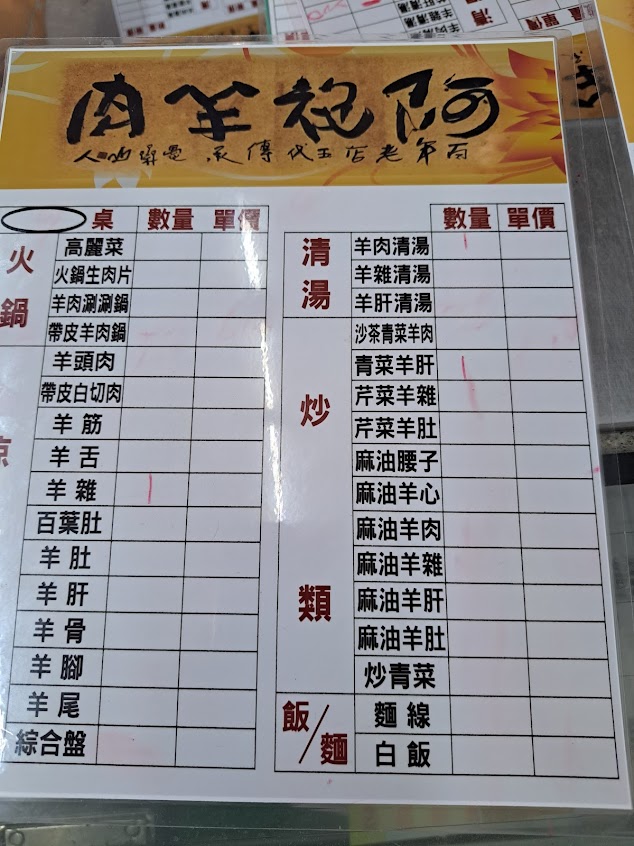 阿 羊肉
百年老店五代傳承
桌 數量 單價
火鍋
高麗菜
火鍋生肉片
羊肉涮涮鍋
帶皮羊肉鍋
羊頭肉
帶皮白切肉
羊筋
羊舌
羊雜
百葉肚
羊肚
羊肝
羊骨
羊腳
羊尾
綜合盤
數量 單價
清湯
羊肉清湯
羊雜清湯
羊肝清湯
炒類
沙茶青菜羊肉
青菜羊肝
芹菜羊雜
芹菜羊肚
麻油腰子
麻油羊心
麻油羊肉
麻油羊雜
麻油羊肝
麻油羊肚
炒青菜
飯/麵
麵線
白飯